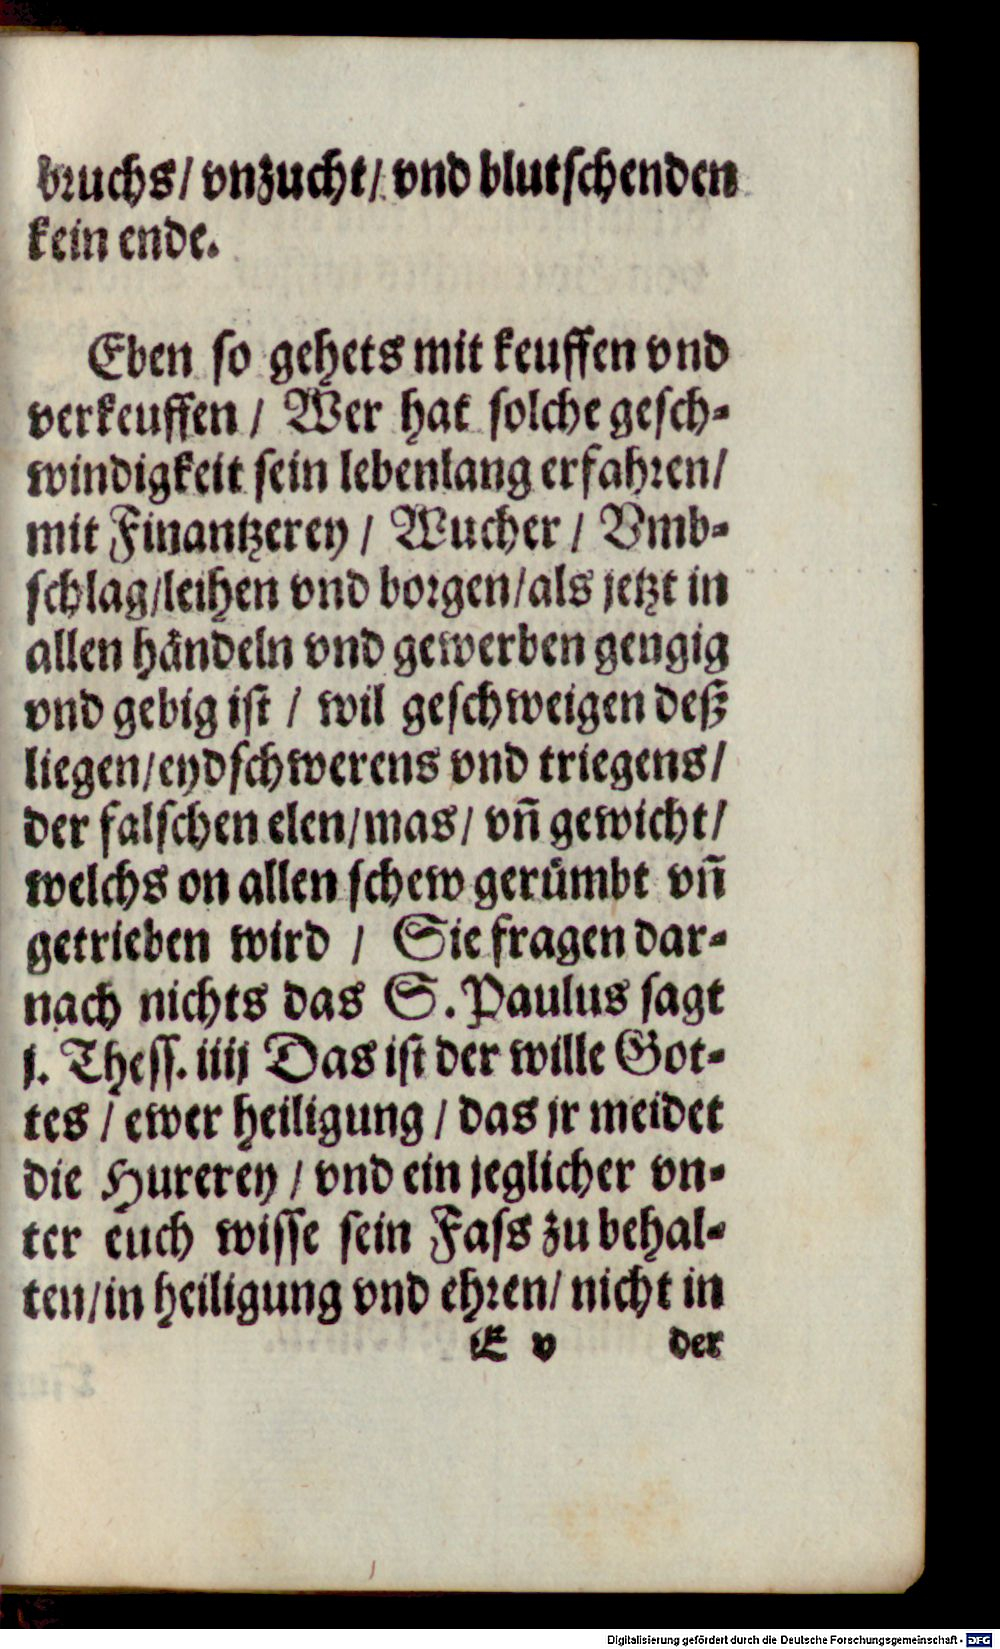 bruchs/ vnzucht/ vnd blutschenden
kein ende.
Eben so gehets mit keuffen vnd
verkeuffen / Wer hat solche gesch-
windigkeit sein lebenlang erfahren/
mit Finantzerey / Wucher / Vmb-
schlag/leihen vnd borgen/als jetzt in
allen händeln vnd gewerben gengig
vnd gebig ist / wil geschweigen deß
liegen/eydschwerens vnd triegens/
der falschen elen/mas/ vñ gewicht/
welchs on allen schew gerümbt vñ
getrieben wird / Sie fragen dar-
nach nichts das S. Paulus sagt
j. Thess. iiij Das ist der wille Got-
tes / ewer heiligung / das jr meidet
die Hurerey / vnd ein jeglicher vn-
ter euch wisse sein Fass zu behal-
ten/in heiligung vnd ehren/ nicht in
E v der
Digitalisierung gefördert durch die Deutsche Forschungsgemeinschaft - DFG